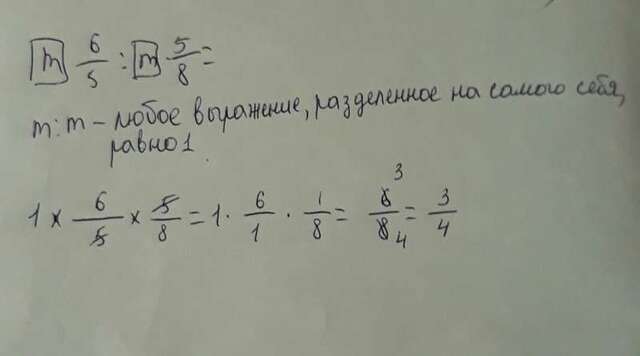 m 6/5 : m 5/8 =
m : m – любое выражение, разделенное на самого себя,
равно 1.
1 × 6/5 × 5/8 = 1 · 6/1 · 1/8 = 6 3/8 4 = 3/4